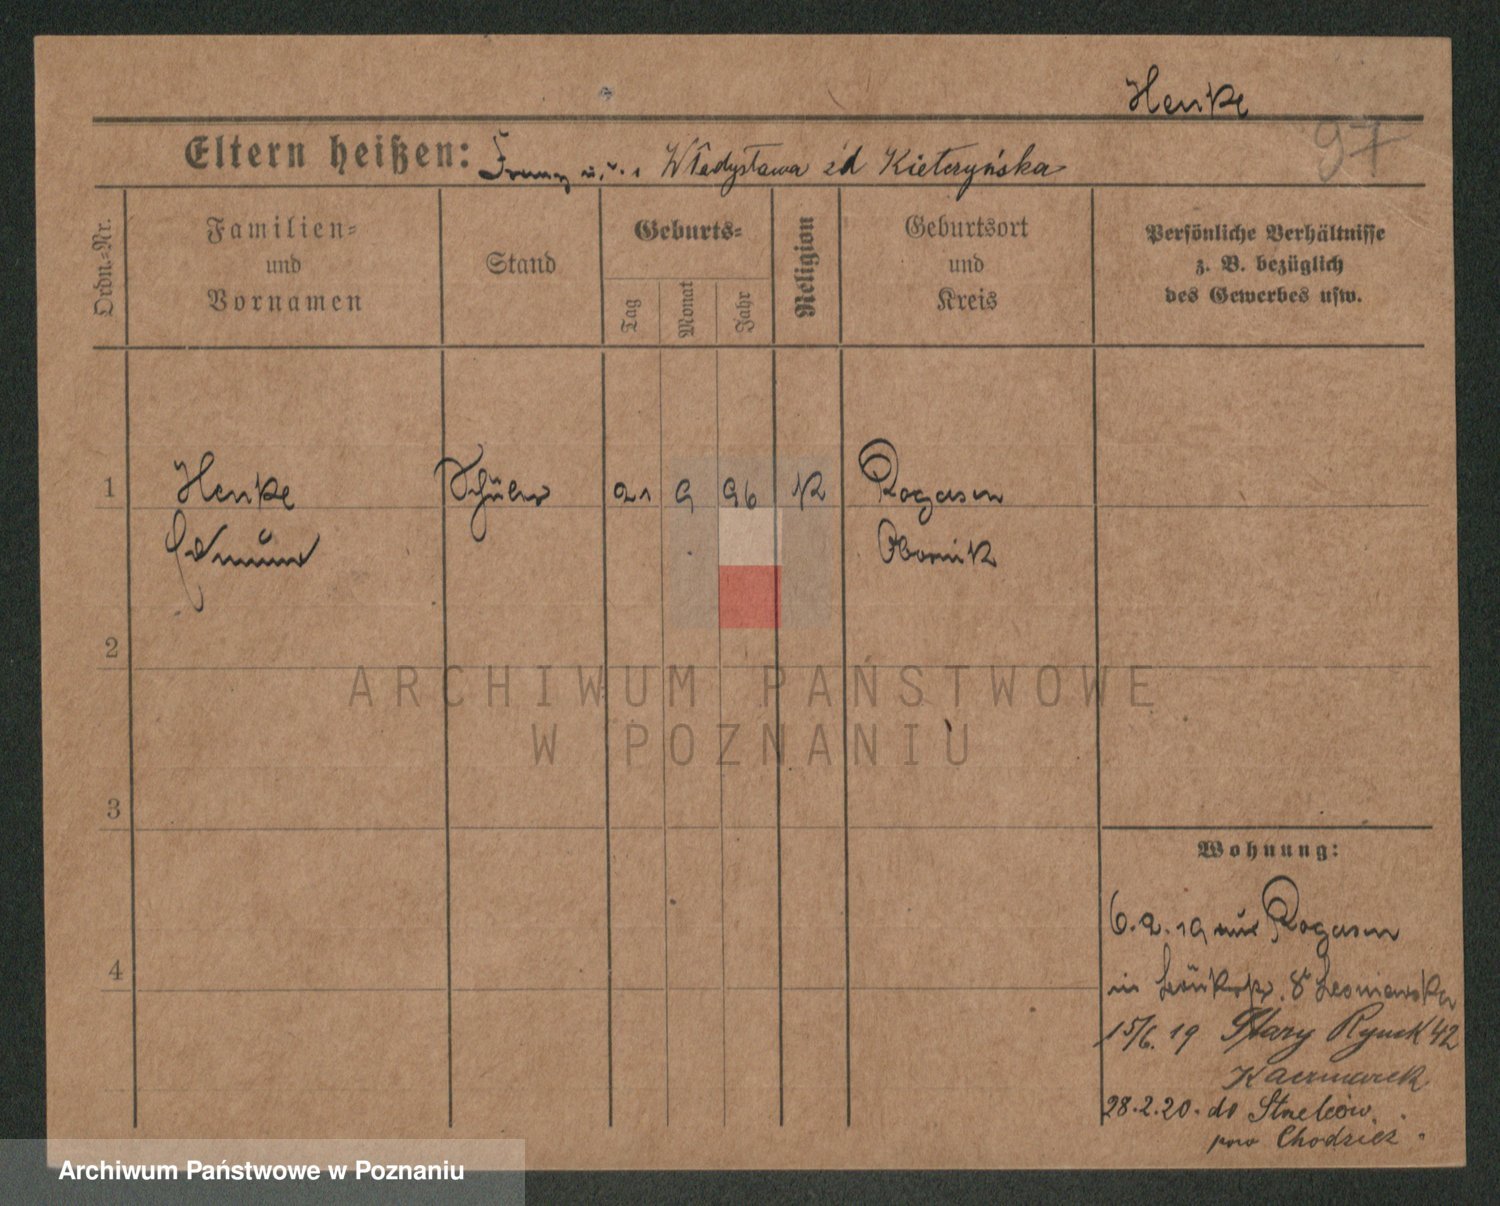 Henke
97
Eltern heißen: Franz u. Władysława zd Kietczyńska
Ordn.-Nr.
Familien-
und
Vornamen
Stand
Geburts-
Tag
Monat
Jahr
Religion
Geburtsort
und
Kreis
Persönliche Verhältnisse
z. B. bezüglich
des Gewerbes usw.
1 Henke Schüler 21 9 96 K Rogasen
Edmund Obornik
2
ARCHIWUM PAŃSTWOWE
W POZNANIU
3
Wohnung:
6.2.19 aus Rogasen
4
in 8 Leoniewska
15/6. 19 Stary Rynek 42
Kaczmarek
28.2.20. do Strelców.
pow Chodzież.
Archiwum Państwowe w Poznaniu